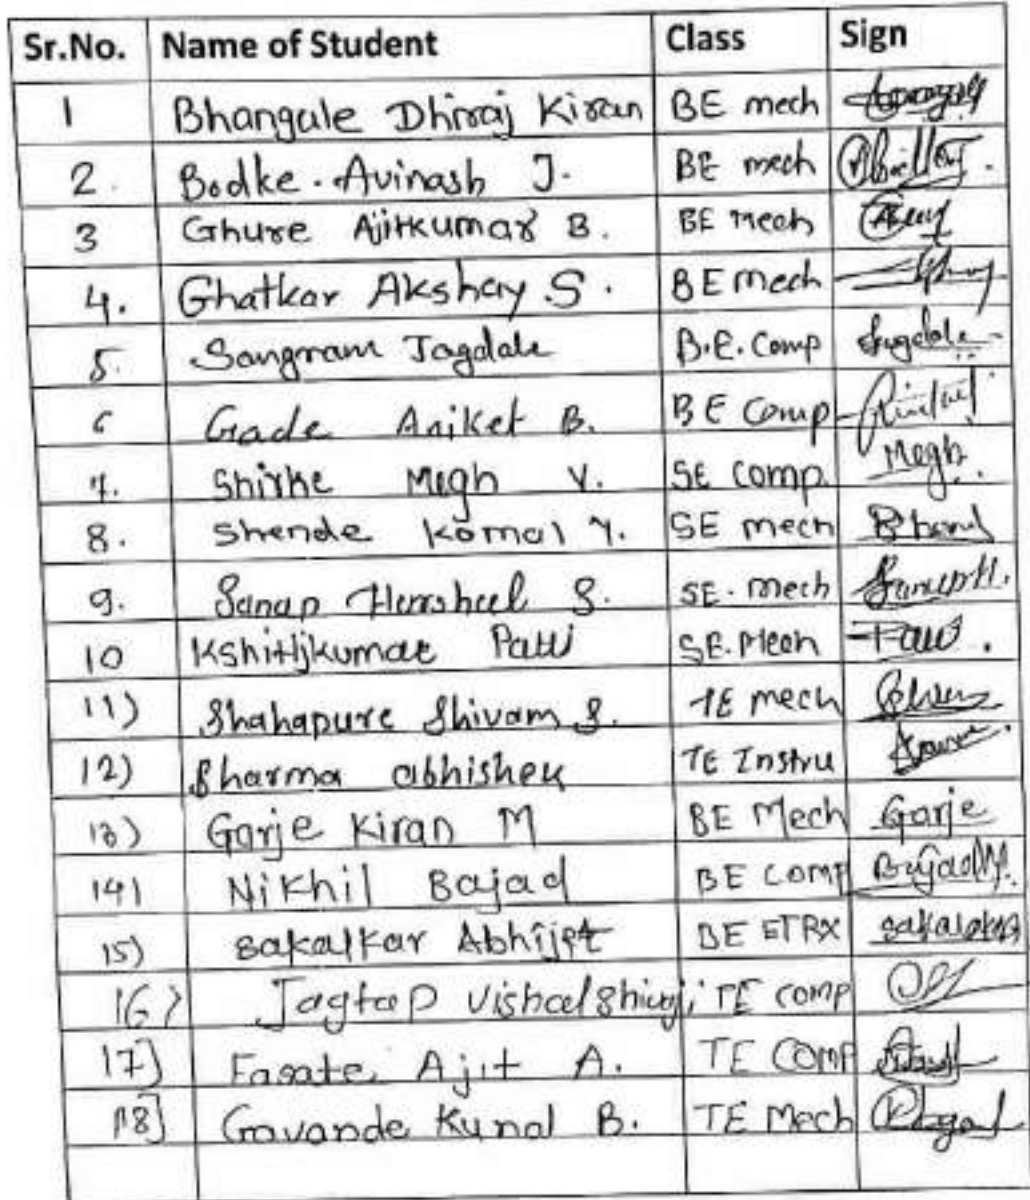 Sr.No. Name of Student Class Sign
1 Bhangale Dhiraj Kiran BE mech
2. Bodke. Avinash J. BE mech
3 Ghure Ajitkumar B. BE mech
4. Ghatkar Akshay S. BE mech
5. Sangram Jagdale B.E. Comp Jagdale
6 Gade Aniket B. BE Comp
7. Shirke Megh V. SE comp. Megh.
8. Shende Komal Y. SE mech
9. Sanap Harsheel S. SE. mech SanapH.
10 Kshitijkumar SE. Mech
11) Shahapure Shivam S. TE mech
12) Sharma abhishek TE Instru
13) Garje Kiran M BE Mech Garje
14) Nikhil Bajad BE COMP
15) Sakalkar Abhijet BE ETRX
16) Jagtap Vishal Shivaji TE comp
17] Fasate Ajit A. TE COMP
18] Gavande Kunal B. TE Mech